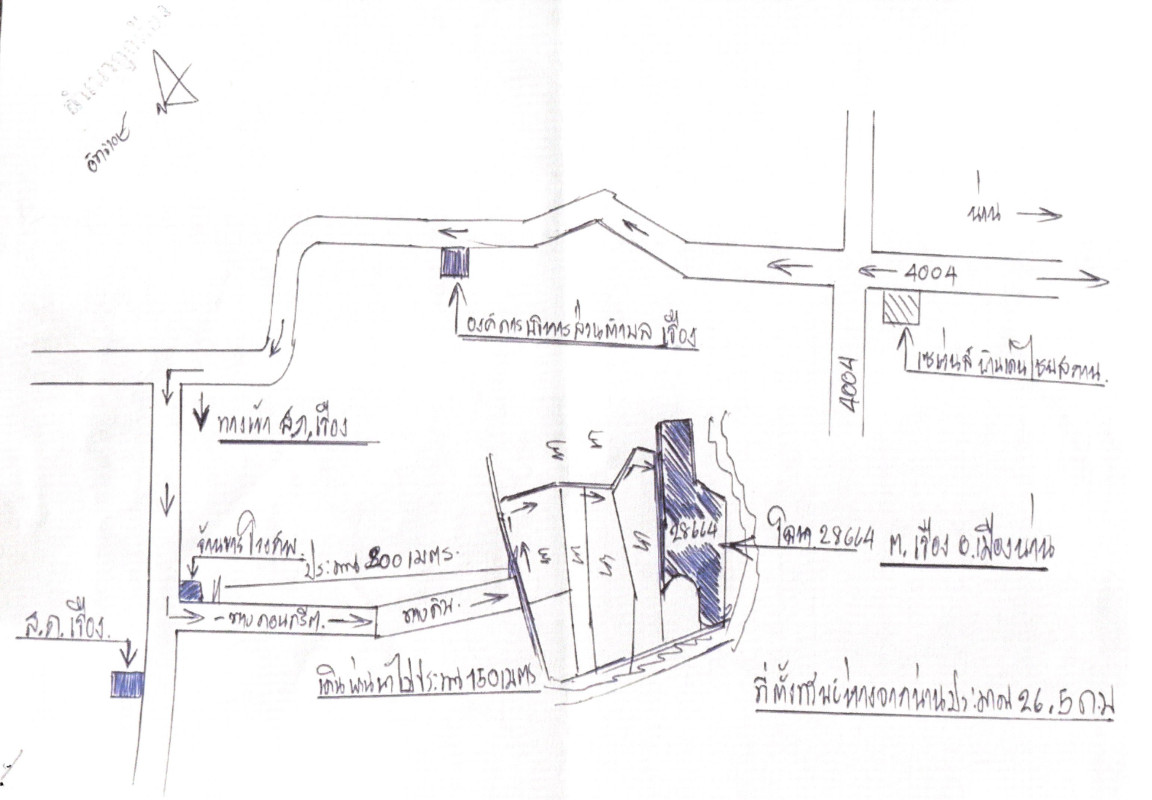 N
น่าน
4004
องค์การบริหารส่วนตำบล เรือง
4004
ทางเข้า ส.ภ.เรือง
น
น
28664
โฉนด 28664 ต.เรือง อ.เมืองน่าน
น
น
น
น
ประมาณ 800 เมตร.
ส.ภ.เรือง.
ทางคอนกรีต.
ทางดิน.
เดินผ่านนาไปประมาณ 150 เมตร
ที่ตั้งทรัพย์ห่างจากน่านประมาณ 26.5 ก.ม